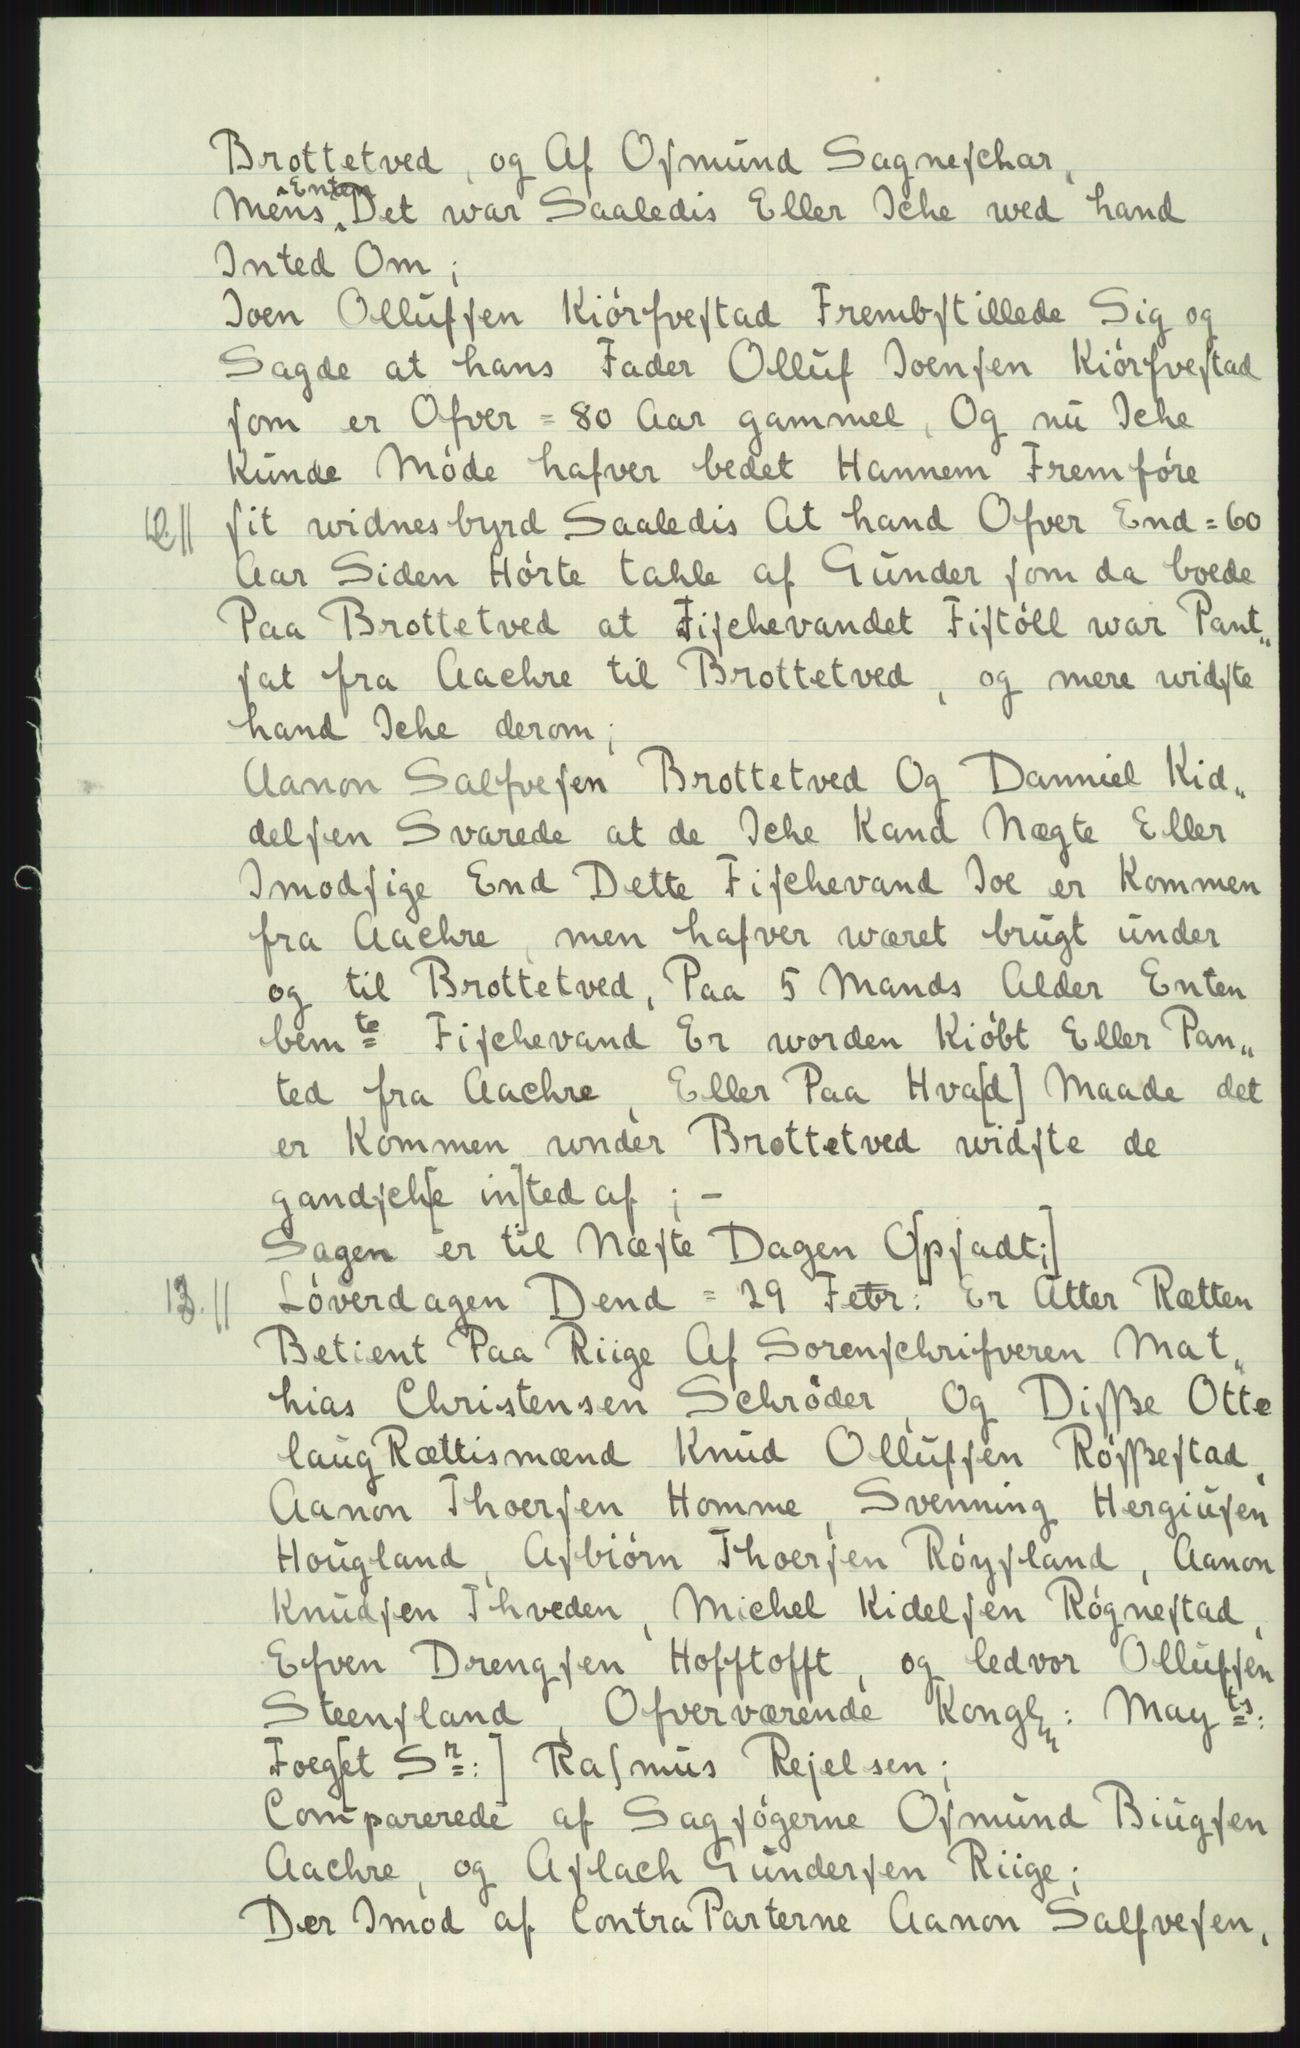 Brottetved, og Af Osmund Sagneschar,
Enten
Mens ‸ Det war Saaledis Eller Iche wed hand
Inted Om;
Joen Ollufsen Kiórfvestad Frembstillede Sig og
Sagde at hans Fader Olluf Joensen Kiórfvestad
som er Ofver = 80 Aar gammel, Og nu Iche
Kunde Móde hafver bedet Hannem Fremfóre
12.|| sit widnesbyrd Saaledis At hand Ofver End = 60
Aar Siden Hórte tahle af Gunder som da boede
Paa Brottetved at Fischevandet Fistóll war Pant„
sat fra Aachre til Brottetved, og mere widste
hand Iche derom;
Aanon Salfvesen Brottetved Og Danniel Kid„
delsen Svarede at de Iche Kand Nægte Eller
Imodsige End Dette Fischevand Joe er Kommen
fra Aachre, men hafver wæret brugt under
og til Brottetved, Paa 5 Mands Alder Enten
bemte Fischevand Er worden Kióbt Eller Pan„
ted fra Aachre, Eller Paa Hva[d] Maade det
er Kommen under Brottetved widste de
gandsch[e in]ted af ; –
Sagen er til Næste Dagen O[psadt;]
13.|| Lóverdagen Dend = 29 Febr: Er Atter Rætten
Betient Paa Riige Af Sorenschrifveren Mat„
hias Christensen Schröder, Og Disße Otte
laugRættismænd Knud Ollufsen Rósßestad,
Aanon Thoersen Homme, Svenning Hergiusen
Hougland, Asbiórn Thoersen Róysland, Aanon
Knudsen Thveden, Michel Kidelsen Rógnestad,
Efven Drengsen Hofftofft, og ledvor Ollufsen
Steensland, Ofverværende Kongl: Mayts:
Foeg[et Sr:] Rasmus Rejelsen;
Comparerede af Sagsógerne Osmund Biugsen
Aachre, og Aslach Gundersen Riige;
Der Imod af ContraParterne Aanon Salfvesen,